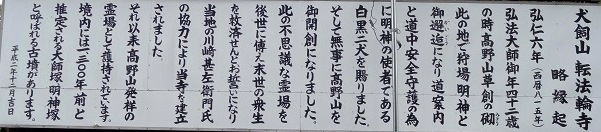 犬飼山 転法輪寺
略縁起
弘仁六年(西暦八一五年)
弘法大師御年四十二歳
の時高野山草創の砌
此の地で狩場明神と
御邂逅になり道案内
と道中安全守護の為
に明神の使者である
白黒二犬を賜りました。
そして無事に高野山を
御開創になりました。
此の不思議な霊場を
後世に傳え末世の衆生
を救済せんとお誓いになり
当地の川﨑甚左衛門氏
の協力により当寺を建立
されました
それ以来高野山発祥の
霊場として護持されています。
境内には一三〇〇年前と
推定される大師塚明神塚
と呼ばれる古墳があります。
平成二年十二月吉日